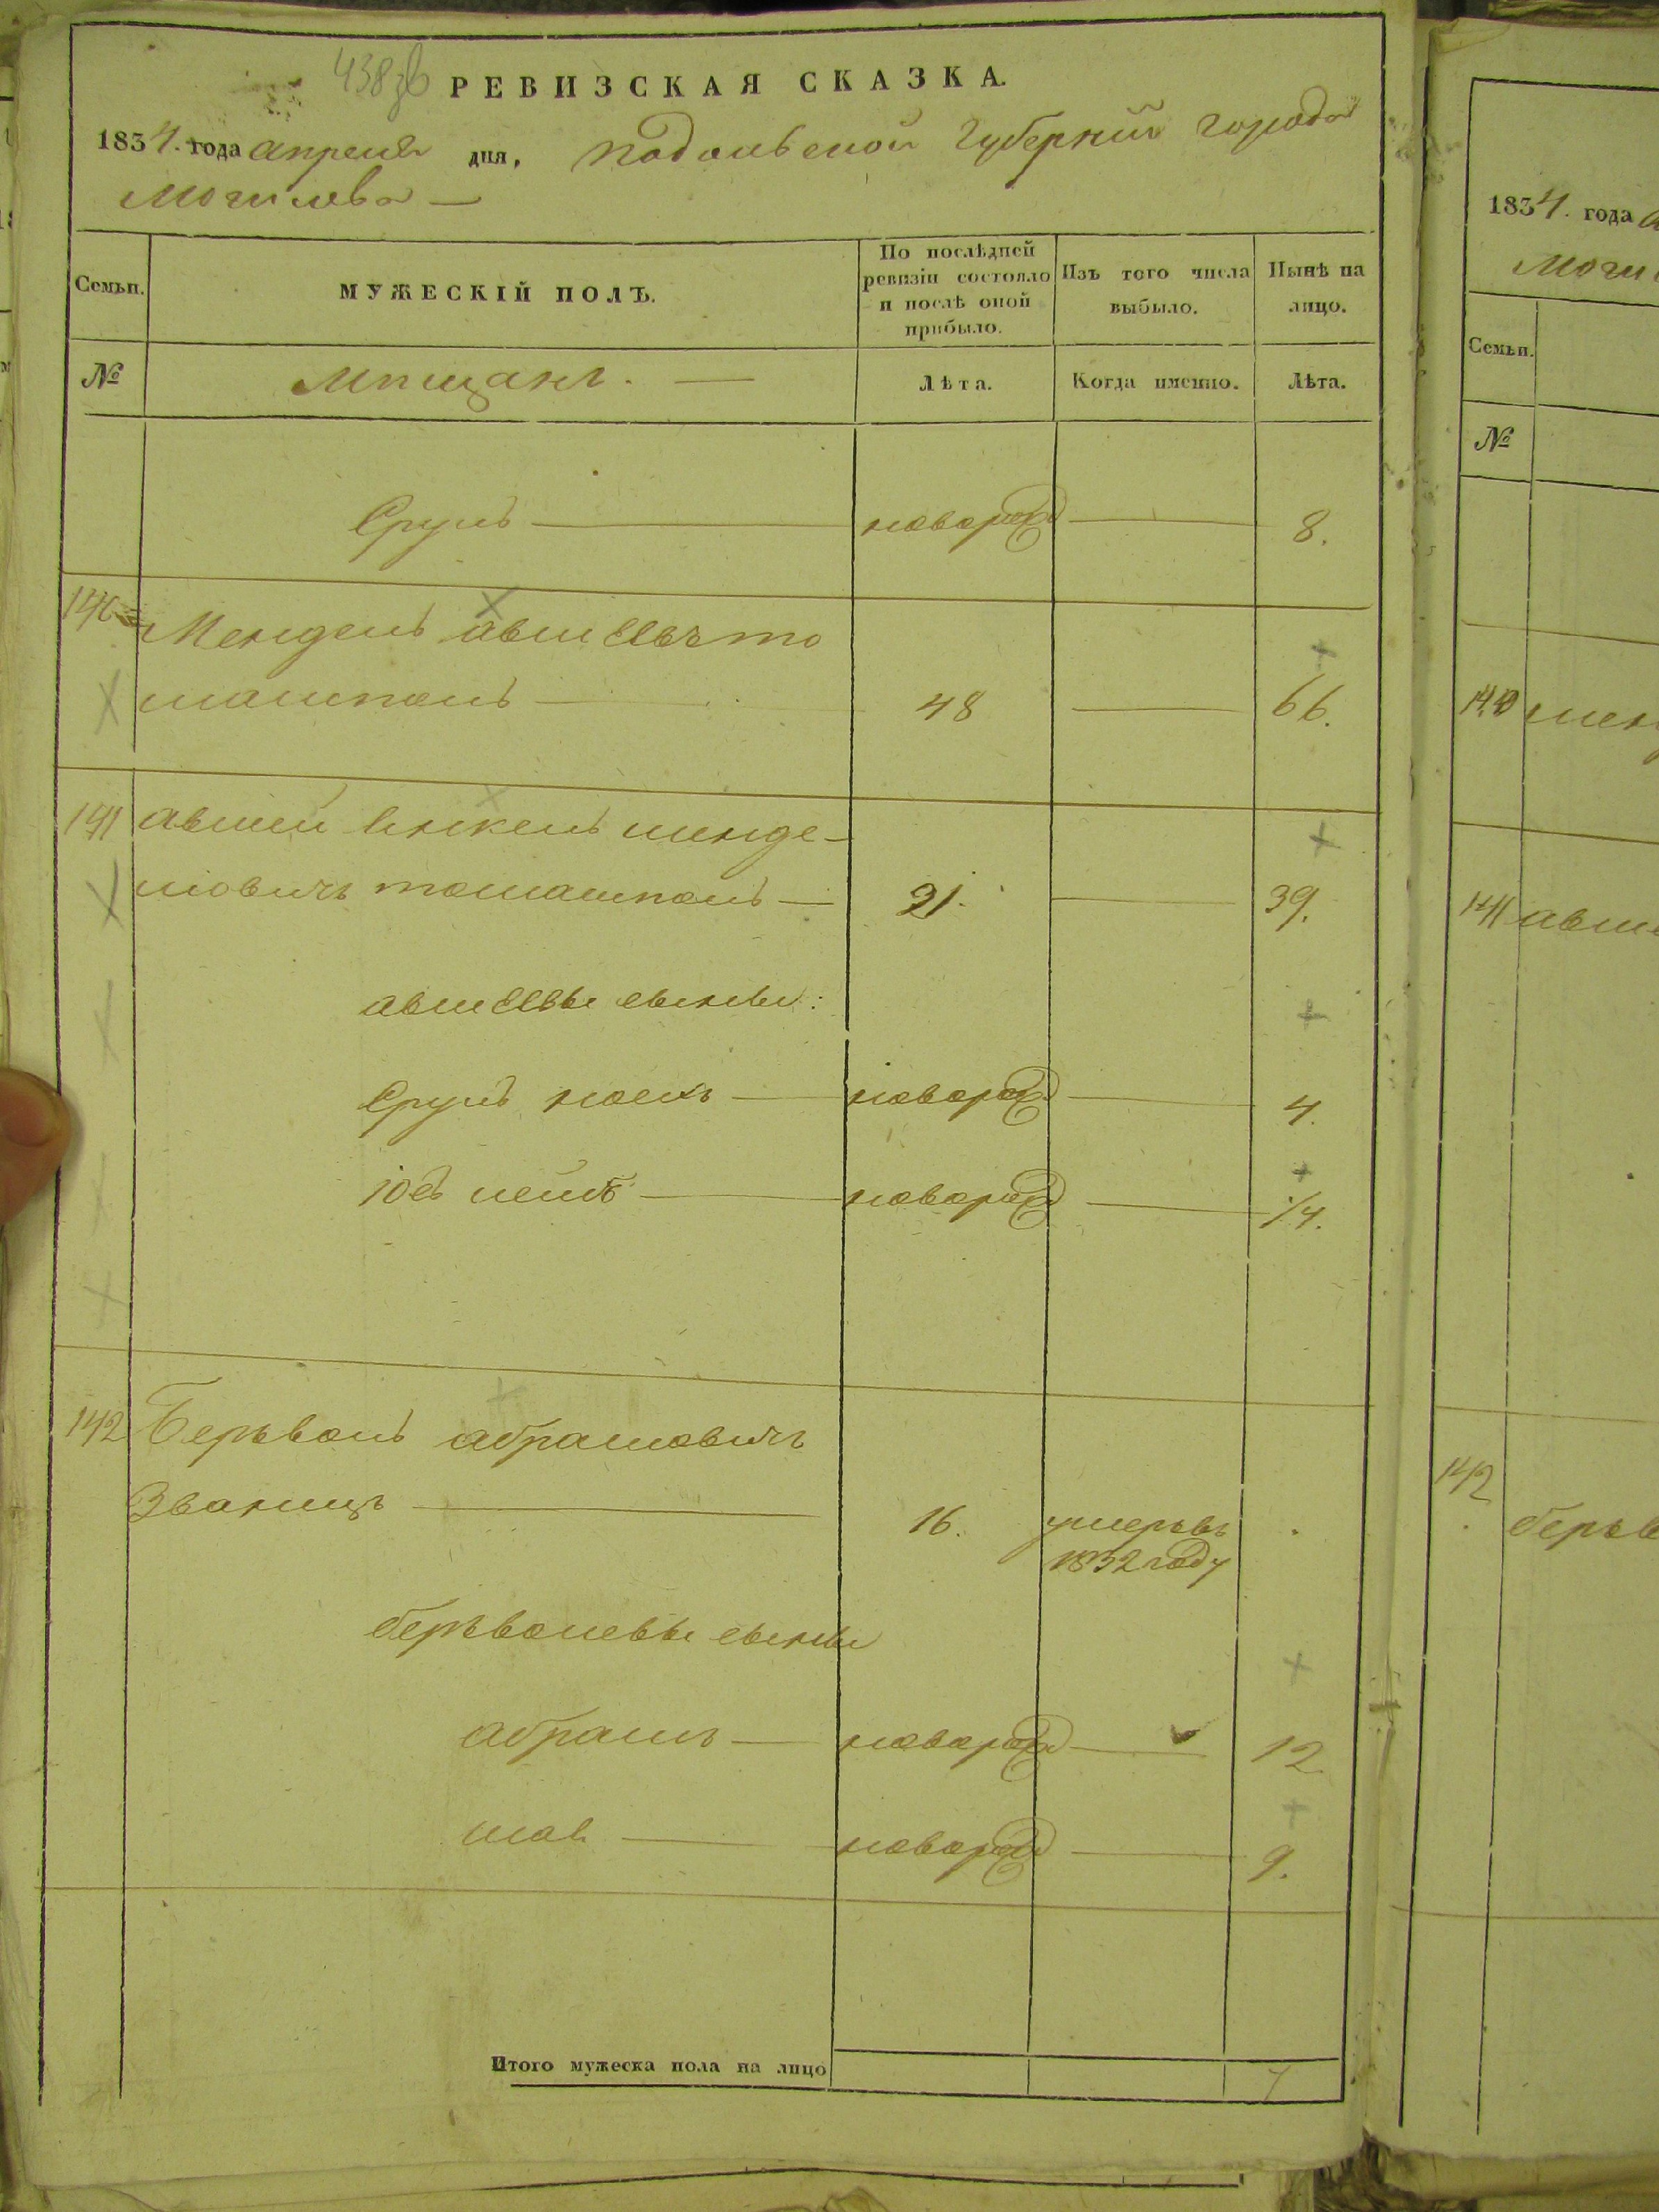 438об
РЕВИЗСКАЯ СКАЗКА.
1834. года апреля дня, Подольской Губернии города
Могилева —
Семьи. МУЖЕСКІЙ ПОЛЪ. По послѣдней ревизіи состояло и послѣ оной прибыло. Изъ того числа выбыло. Нынѣ на лицо.
№ Мѣщанѣ. — Лѣта. Когда именно. Лѣта.
Сруль — новорож — 8.
140 Мендель Авшіевъ То
машполь — 48 — 66.
141 авшій Янкель менде-
ліовичъ томашполь — 21. — 39.
авшіевы сыновы:
Сруль — новорож — 4.
новорож — 1/4.
142 Берьволь абрамовичъ
Званицъ — 16. умеръ въ
1832 году
берьволевы сыновы
абрамъ — новорож — 12
новорож — 9.
Итого мужеска пола на лицо 7
1834. года
Семьи.
№
140 мен
141 авш
142
берьв